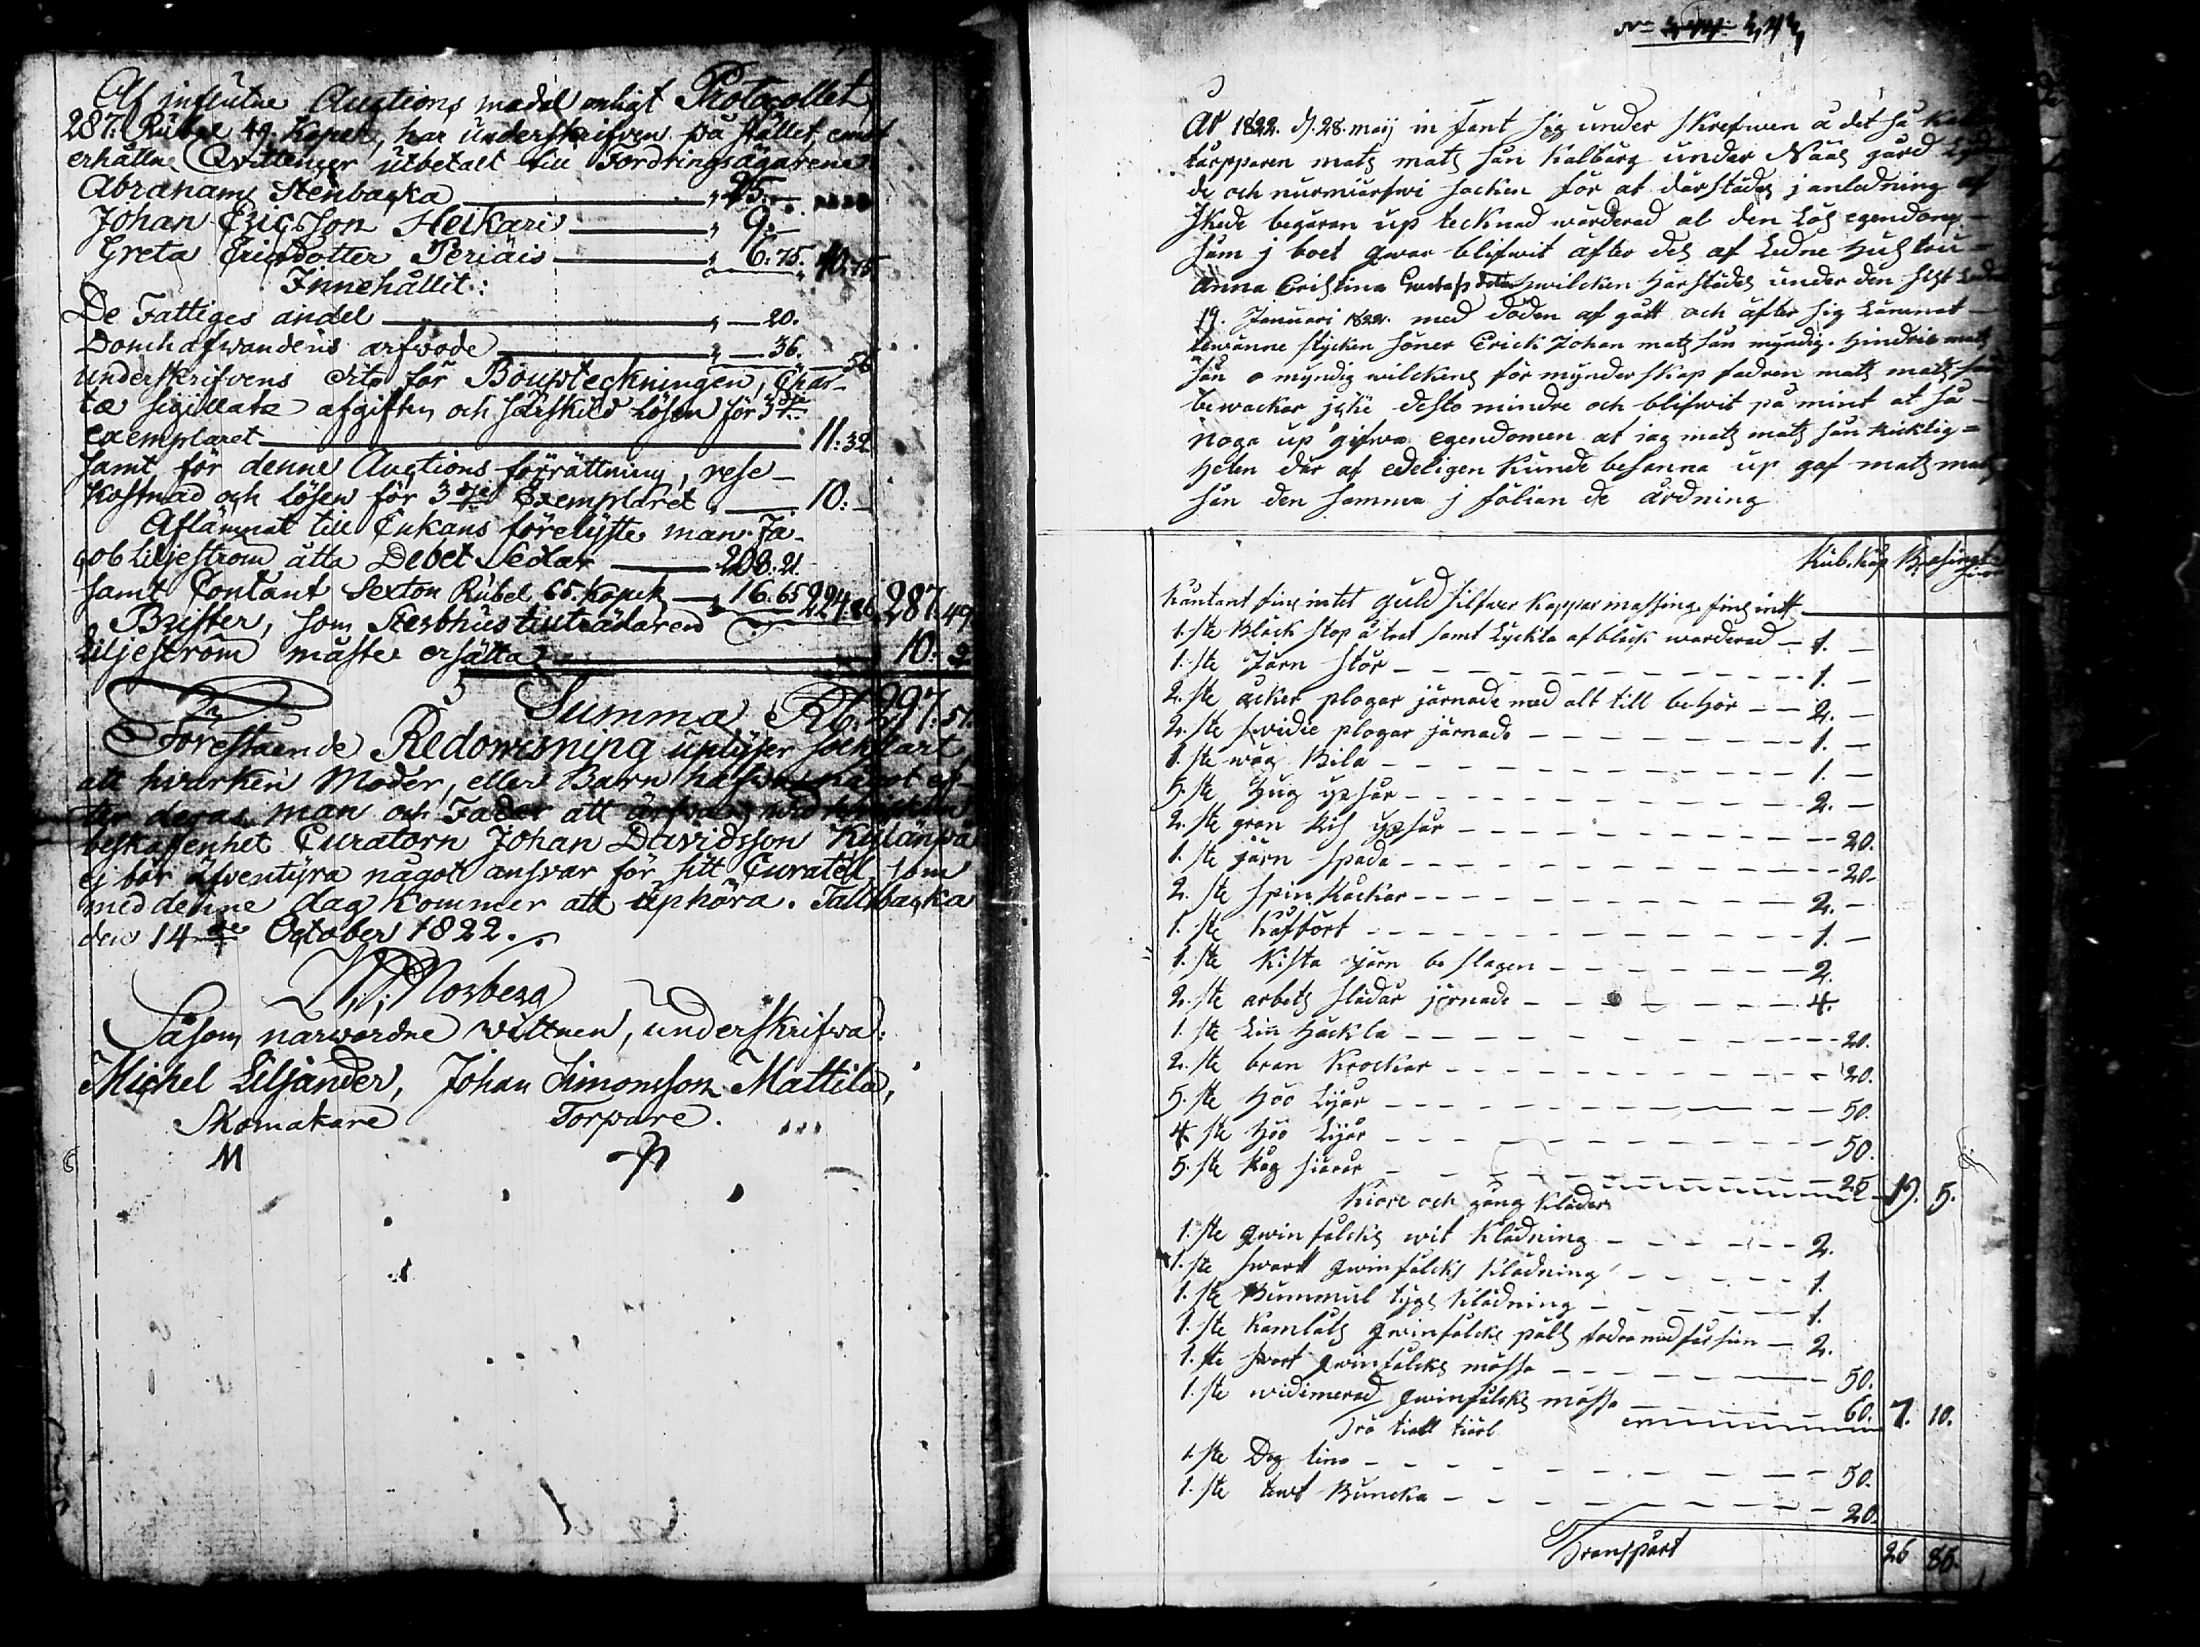 Af influtne Auctions medel enligt Protocollet,
287. Rubel 49. Kopek, har underskrifven på stället, emot
erhållne Qvittenzer utbetalt till Fordringsägarene
Abrahams Stenbacka 25.
Johan Ericsson Heikari 9.
Greta Ericsdotter Periäis 6. 75. 40. 75.
Innehållit:
De Fattiges andel 20.
Domhafwandens arfvode 36. 56
underskrifvens dito för Boupteckningen, Char-
tæ sigillatæ afgiften och särskild lösen för 3dje
exemplaret 11: 32.
samt för denne Auctions förrättning, rese-
kostnad och lösen för 3dje Exemplaret 10:
Aflämnat till Enkans förelyste man Ja-
cob Liljeström åtta Debet Sedlar 208: 21.
samt Contant Sexton Rubel 65. Kopek 16. 65 224. 86 287. 49
Brister, som Sterbhustillträdaren
Liljeström måste ersätta 10. 2
Summa Rb. 297: 51.
Förestående Redowisning uplyser solklart,
att hwarken Moder, eller Barn hafwa något ef-
ter deras man och Fader att ärfva,
beskaffenhet Curatorn Johan Davidsson Kylänpä
ej bör äfventyra något answar för sitt Curatel, som
med denne dag kommer att uphöra. Tallbacka
den 14de October 1822.
Norberg
Såsom närwardne wittnen, underskrifwa:
Michel Liljander, Johan Simonsson Mattila,
Skomakare Torpare.
M
År 1822. d. 28. maij in fant sig under skrefwen å det så
tårpparen matz matz sån Kalbärg under Nääs gård
de och nurmiärfwi socken för at därstädes j anledning af
skede begäran up tecknad wärderad al den Lös egendom
som j boet qwar blifwit äfter des af Ledne Hustru
Anna Cristina hwilcken härstädes under den
19. Januari 1822. med döden af gått och äfter sig Lämnat
tewänne stycken söner Erick Johan matz sån myndig. Hindric matz
sån o myndig wilckens för mynderskap fadren matz matz sån
bewackar icke desto mindre och blifwit på mint at så
noga up gifwa egendomen at jag matz matz sån ricktig-
heten där af edeligen kunde besanna up gaf matz matz
sån den samma j följan de årdning
Rub. Kop
Kåntant fins intet guld silfwer kappar massing fins intt
1. ste Bläck stop å trat samt Lyckta af bläck warderad 1.
1. ste Järn stör 1.
2. ste åcker plogar järnade med alt till behör 2.
2. ste swidie plogar järnade 1.
1. ste wåg Bila 1.
5. ste Hug yxsar 2.
2. ste gran Ris yxsar 20.
1. ste järn spada 20.
2. ste spin Råckar 2.
1. ste 1.
1. ste Kista järn be slagen 2.
2. ste arbetz slädar järnade 4.
1. ste Lin Häckla 20.
2. ste bran Krockar 20.
5. ste Höö Lijar 50.
4 ste Höö Lijar 50.
5. ste Råg siärår 25 19. 5.
Kiore och gång Kläder
1. ste qwinfålcks wit Klädning 2.
1. ste swart qwinfålcks Klädning 1.
1. ste Bummul tygs Klädning 1.
1. ste Kamlåts qwinfålcks päls fodra med får sin 2.
1. ste swart qwinfålcks mössa 50.
1. ste widimerad qwinfålcks mössa 60. 7. 10.
Trä tiell tiärl
1. ste Deg tina 50.
1. ste Buncka 20.
Transpårt 26 85.